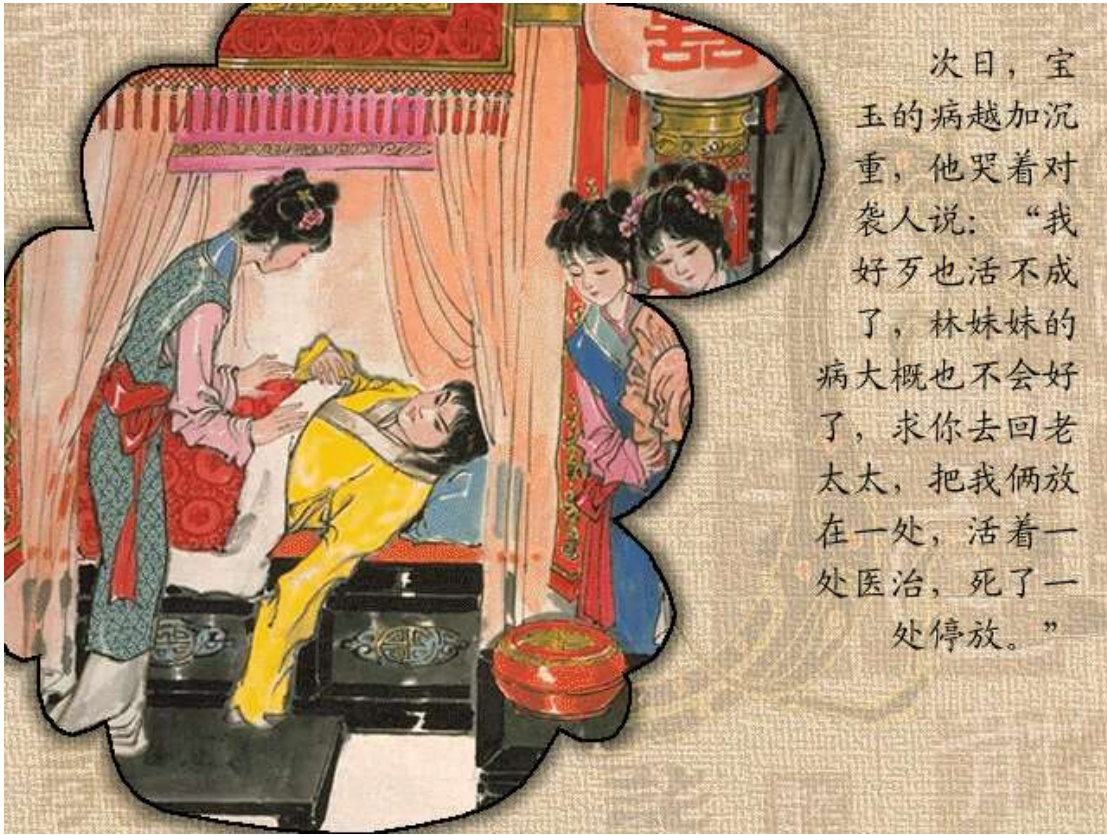 次日，宝
玉的病越加沉
重，他哭着对
袭人说：“我
好歹也活不成
了，林妹妹的
病大概也不会好
了，求你去回老
太太，把我俩放
在一处，活着一
处医治，死了一
处停放。”
囍